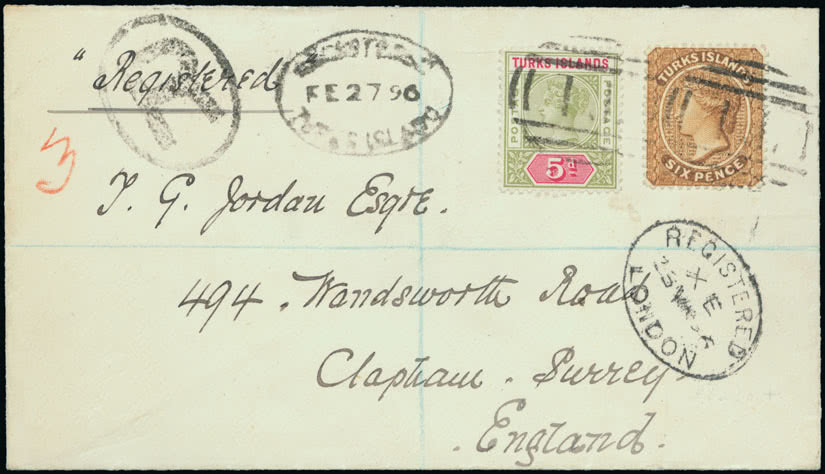 "Registered"
R
REGISTERED
FE 27 96
TURKS ISLAND
TURKS ISLANDS
POSTAGE
5d
TURKS ISLANDS
SIX PENCE
3
T. G. Jordan Esqre.
494. Wandsworth Road
Clapham. Surrey
England.
REGISTERED
LONDON